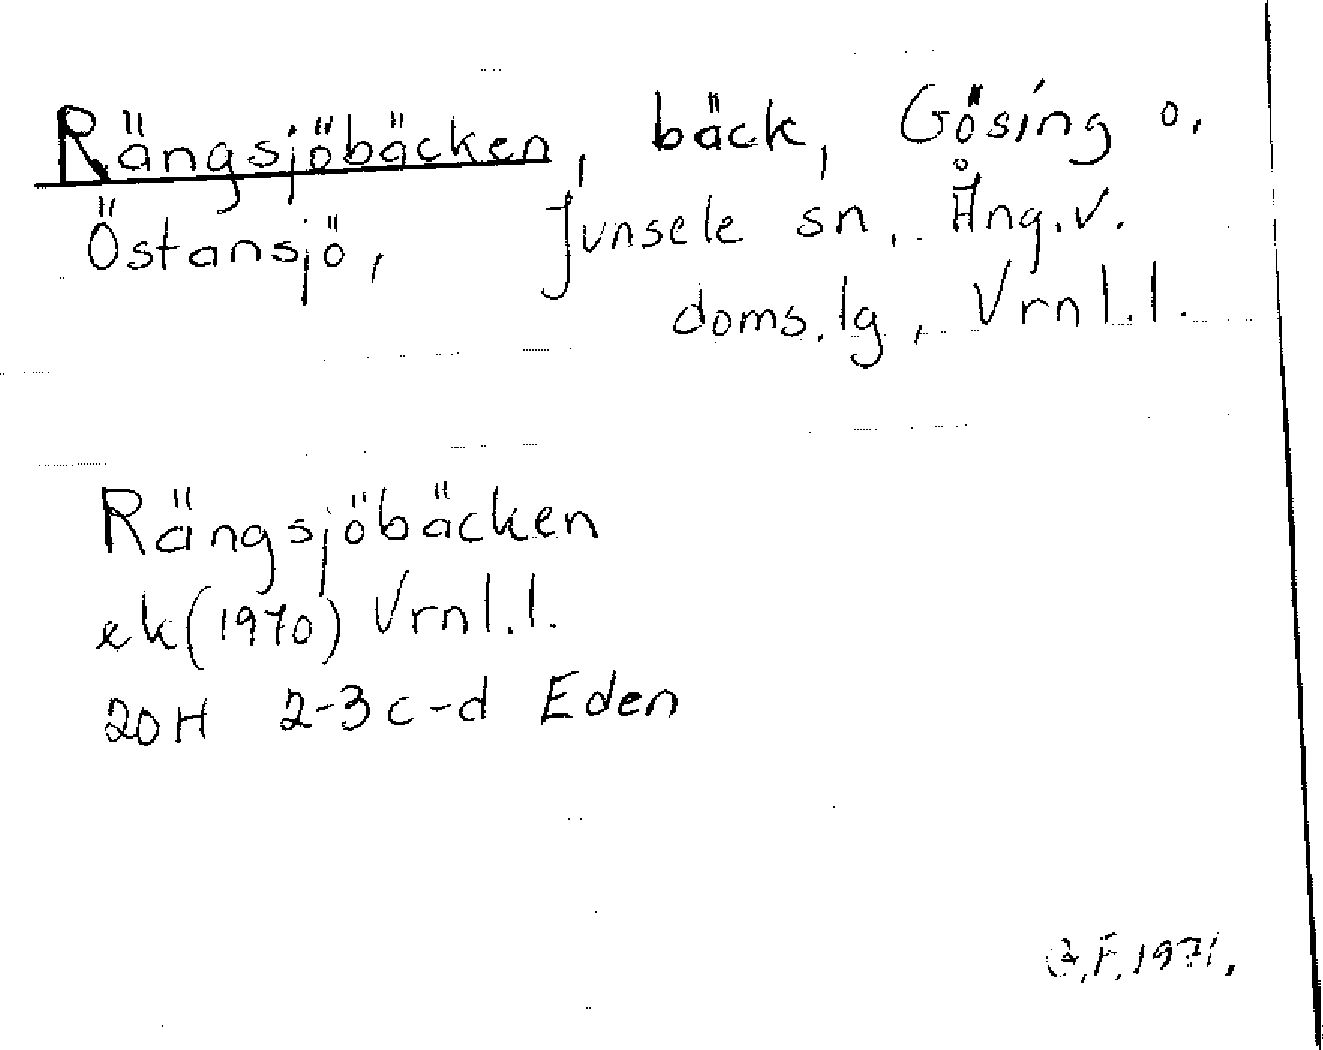 Rängsjöbäcken, bäck, Gösing o.
Östansjö, Junsele sn, Ång.v.
doms.lg, Vrnl.l.
Rängsjöbäcken
ek(1970) Vrnl.l.
20H 2-3c-d Eden
F. 1971.